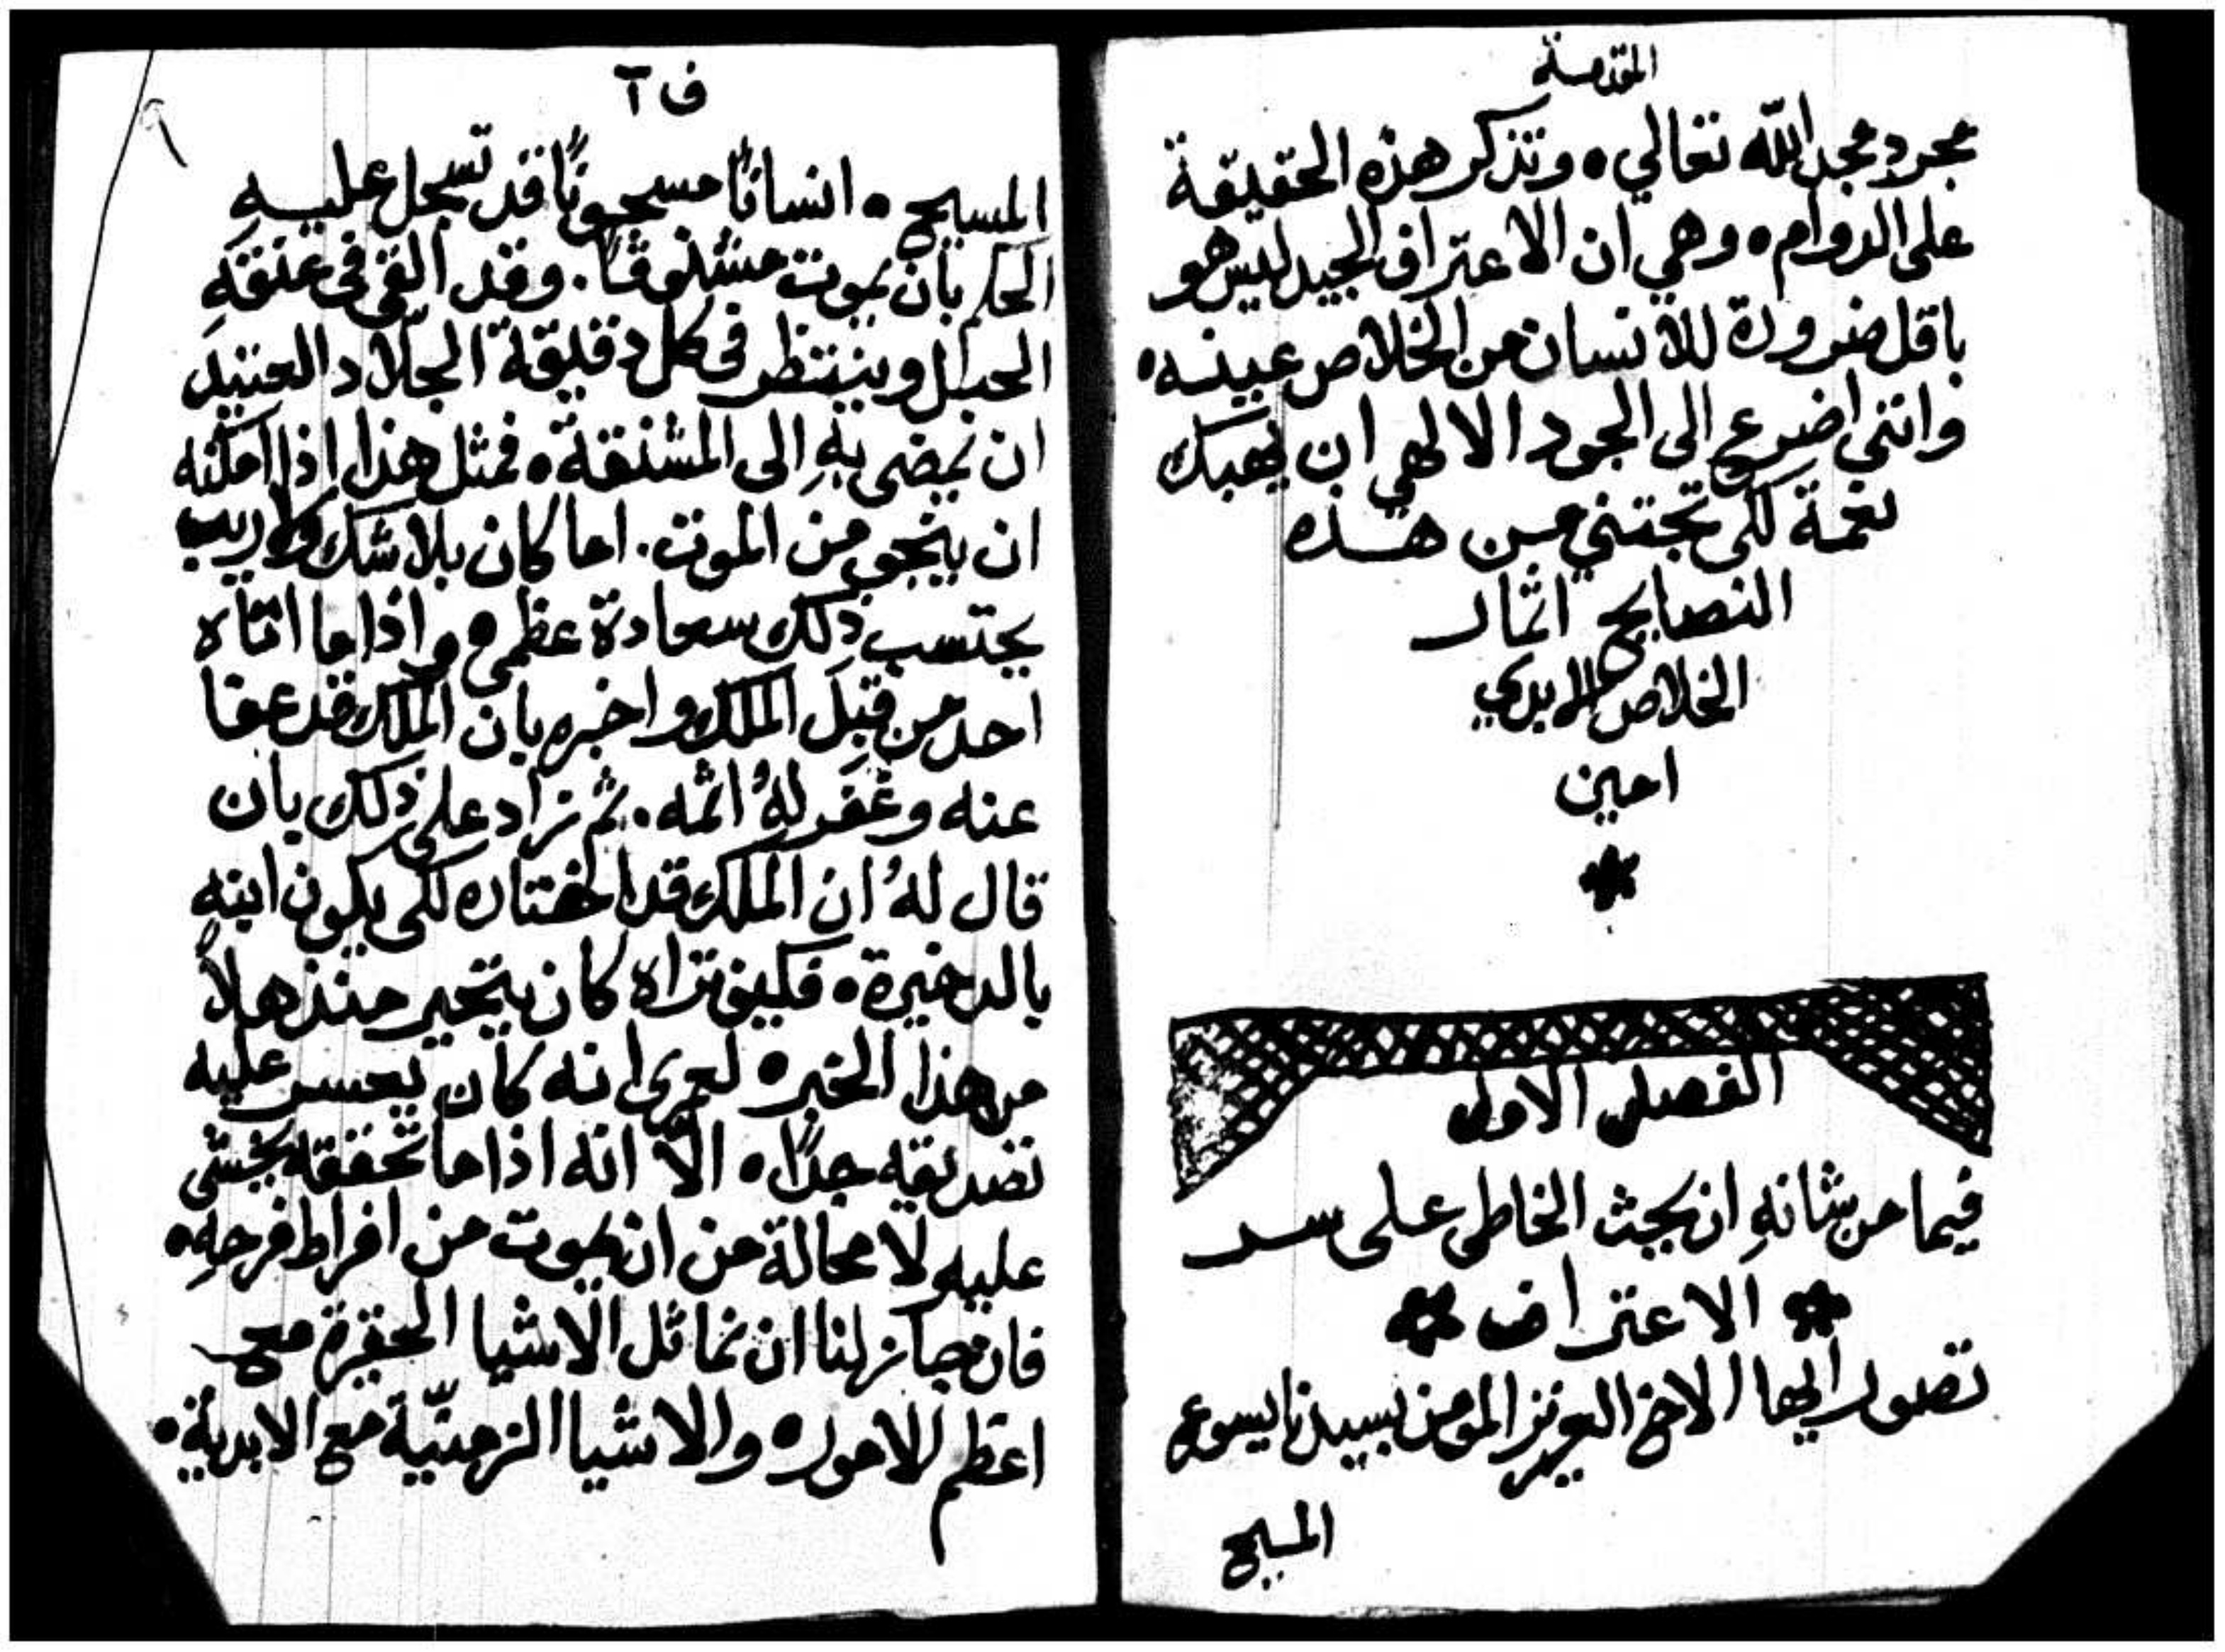 المقدمة
مجرد مجد الله تعالي ٥ وتذكر هذه الحقيقة
على الدوام ٥ وهي ان الاعتراف الجيد ليس هو
باقل ضرورة للانسان من الخلاص عينه ٥
وانني اضرع الى الجود الالهي ان يهبك
نعمة لكى تجتني من هذه
النصايح اثمار
الخلاص الابدي
امين
الفصل الاول
فيما من شانهِ ان يحث الخاطى على سر
الاعتراف
تصور ايها الاخ العزيز المومن بسيدنا يسوع
المسيح
ف ٦
المسيح ٥ انسانًا مسجونًا قد تسجل عليهِ
الحكم بان يموت مشنوقًا. وقد القى فى عنقهِ
الحبل وينتظر فى كل دقيقة الجلّاد العتيد
ان يمضى بهِ الى المشنقة ٥ فمثل هذا اذا امكنه
ان ينجو من الموت. اما كان بلا شك ولا ريب
يحتسب ذلك سعادة عظمي ٥ واذا ما اتاه
احد من قِبَل الملك واخبره بان الملك قد عفا
عنه وغفر لهُ اثمه. ثم زاد على ذلك بان
قال لهُ ان الملك قد اختاره لكى يكون ابنهِ
بالدخيرة ٥ فكيف تراه كان يتحير منذهلاً
من هذا الخبر ٥ لعمرى انه كان يعسر عليه
تصديقه جدًا ٥ الّا انه اذا ما تحققه يخشى
عليهِ لا محالة من ان يموت من افراط فرحهِ ٥
فان جاز لنا ان نماثل الاشيا الحقيرة مع
اعظم الامور ٥ والاشيا الزمنيّة مع الابدية ٥